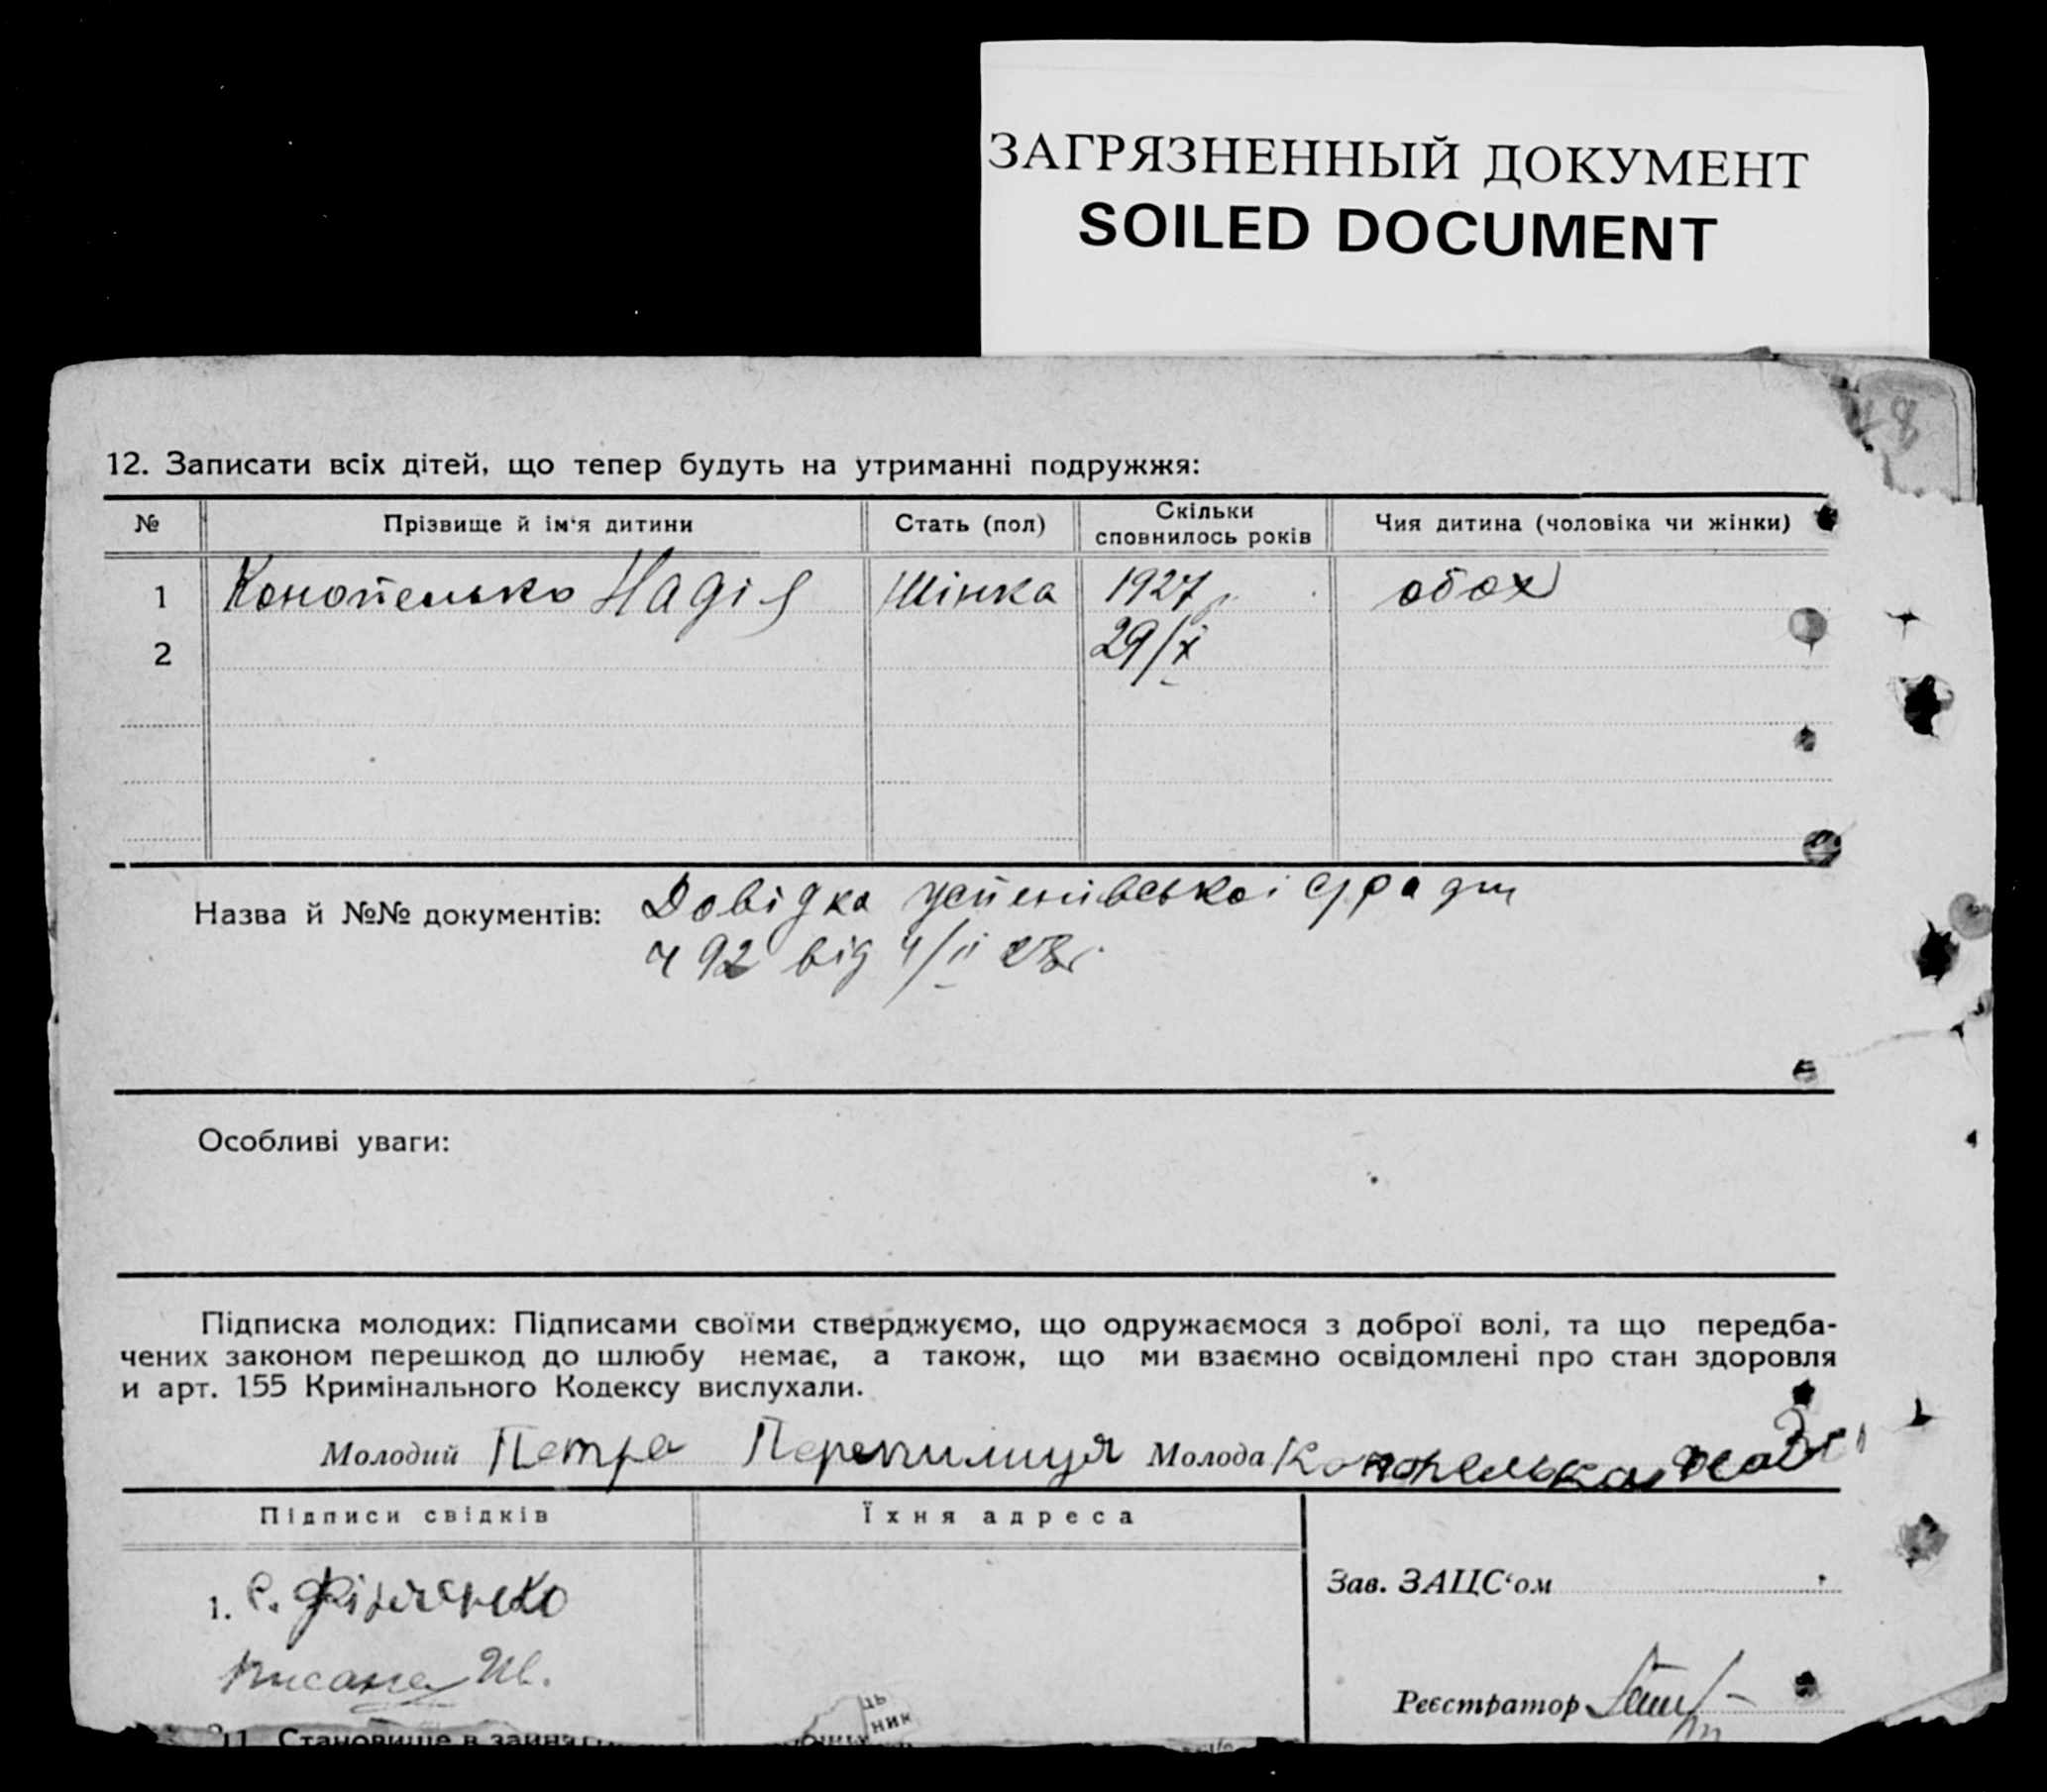 ЗАГРЯЗНЕННЫЙ ДОКУМЕНТ
SOILED DOCUMENT
18
12. Записати всіх дітей, що тепер будуть на утриманні подружжя:
№ Прізвище й ім'я дитини Стать (пол) Скільки сповнилось років Чия дитина (чоловіка чи жінки)
1 Конопелько Надія Жінка 1927 р. обох
2 29/X
Назва й №№ документів: Довідка успенівської с/ради
ч 92 від 4/II 28г.
Особливі уваги:
Підписка молодих: Підписами своїми стверджуємо, що одружаємося з доброї волі, та що передба-
чених законом перешкод до шлюбу немає, а також, що ми взаємно освідомлені про стан здоровля
и арт. 155 Кримінального Кодексу вислухали.
Молодий Петро Перепилиця Молода Конопелька
Підписи свідків Їхня адреса
Зав. ЗАЦС'ом
1. С.
Реєстратор
ць
ник
11. Становище в